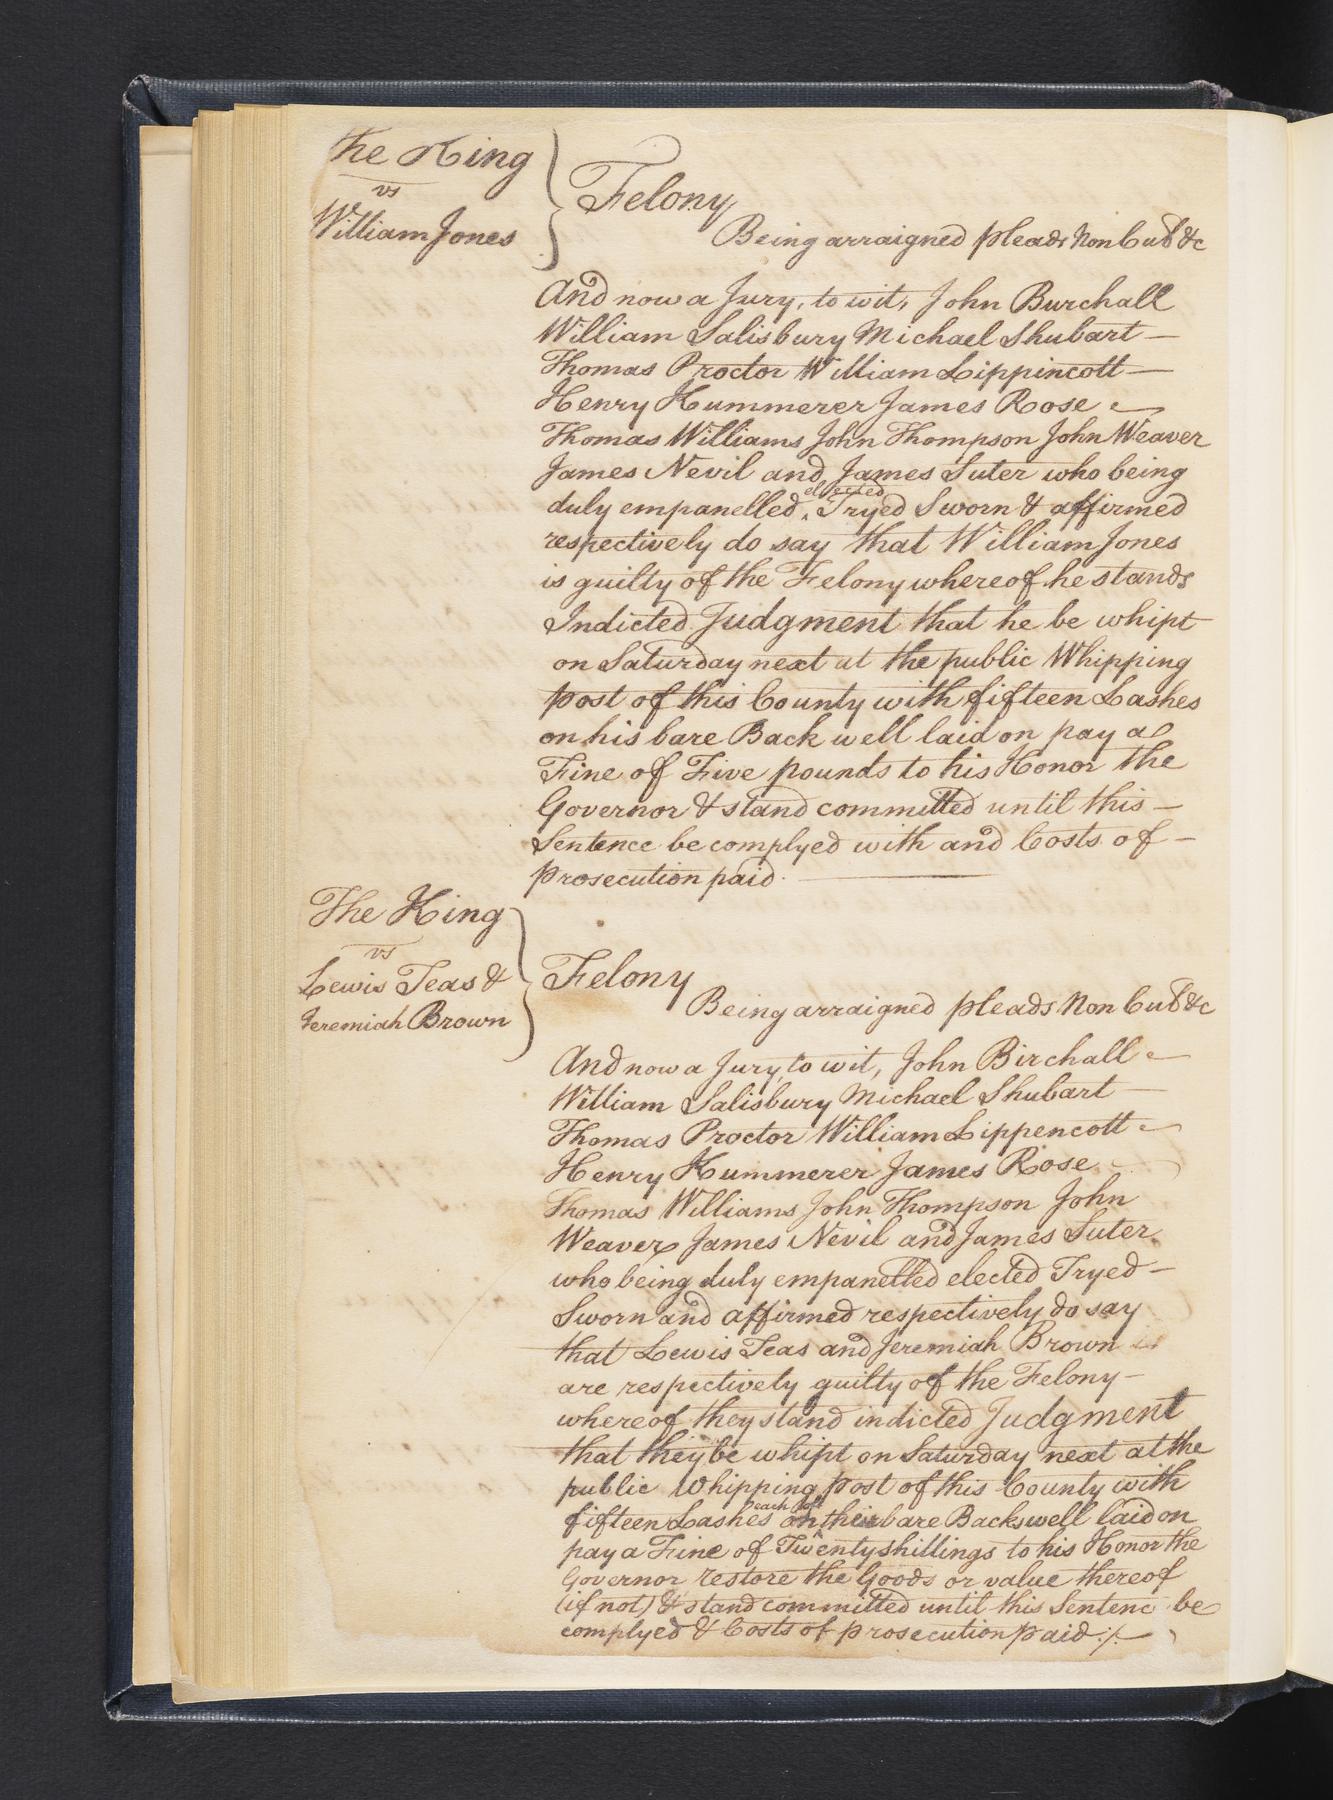 The King
vs
William Jones
Felony
Being arraigned pleads Non Cul &c
And now a Jury, to wit, John Burchall
William Salisbury Michael Shubart —
Thomas Proctor William Lippincott —
Henry Kummerer James Rose
Thomas Williams John Thompson John Weaver
James Nevil and James Suter who being
elected
duly empanelled ‸ Tryed Sworn & affirmed
respectively do say that William Jones
is guilty of the Felony whereof he stands
Indicted Judgment that he be whipt
on Saturday next at the public Whipping
post of this County with fifteen Lashes
on his bare Back well laid on pay a
Fine of Five pounds to his Honor the
Governor & stand committed until this —
Sentence be complyed with and Costs of —
prosecution paid.
The King
vs
Lewis Teas &
Jeremiah Brown
Felony
Being arraigned pleads Non Cul &c
And now a Jury, to wit, John Birchall
William Salisbury Michael Shubart —
Thomas Proctor William Lippencott
Henry Kummerer James Rose
Thomas Williams John Thompson John
Weaver James Nevil and James Suter
who being duly empanelled elected Tryed —
Sworn and affirmed respectively do say
that Lewis Teas and Jeremiah Brown
are respectively guilty of the Felony —
whereof they stand indicted Judgment
that they be whipt on Saturday next at the
public Whipping post of this County with
each
fifteen Lashes on their bare Backs well laid on
pay a Fine of Twenty shillings to his Honor the
Governor restore the Goods or value thereof
(if not) & stand committed until this Sentenc be
complyed & Costs of prosecution paid